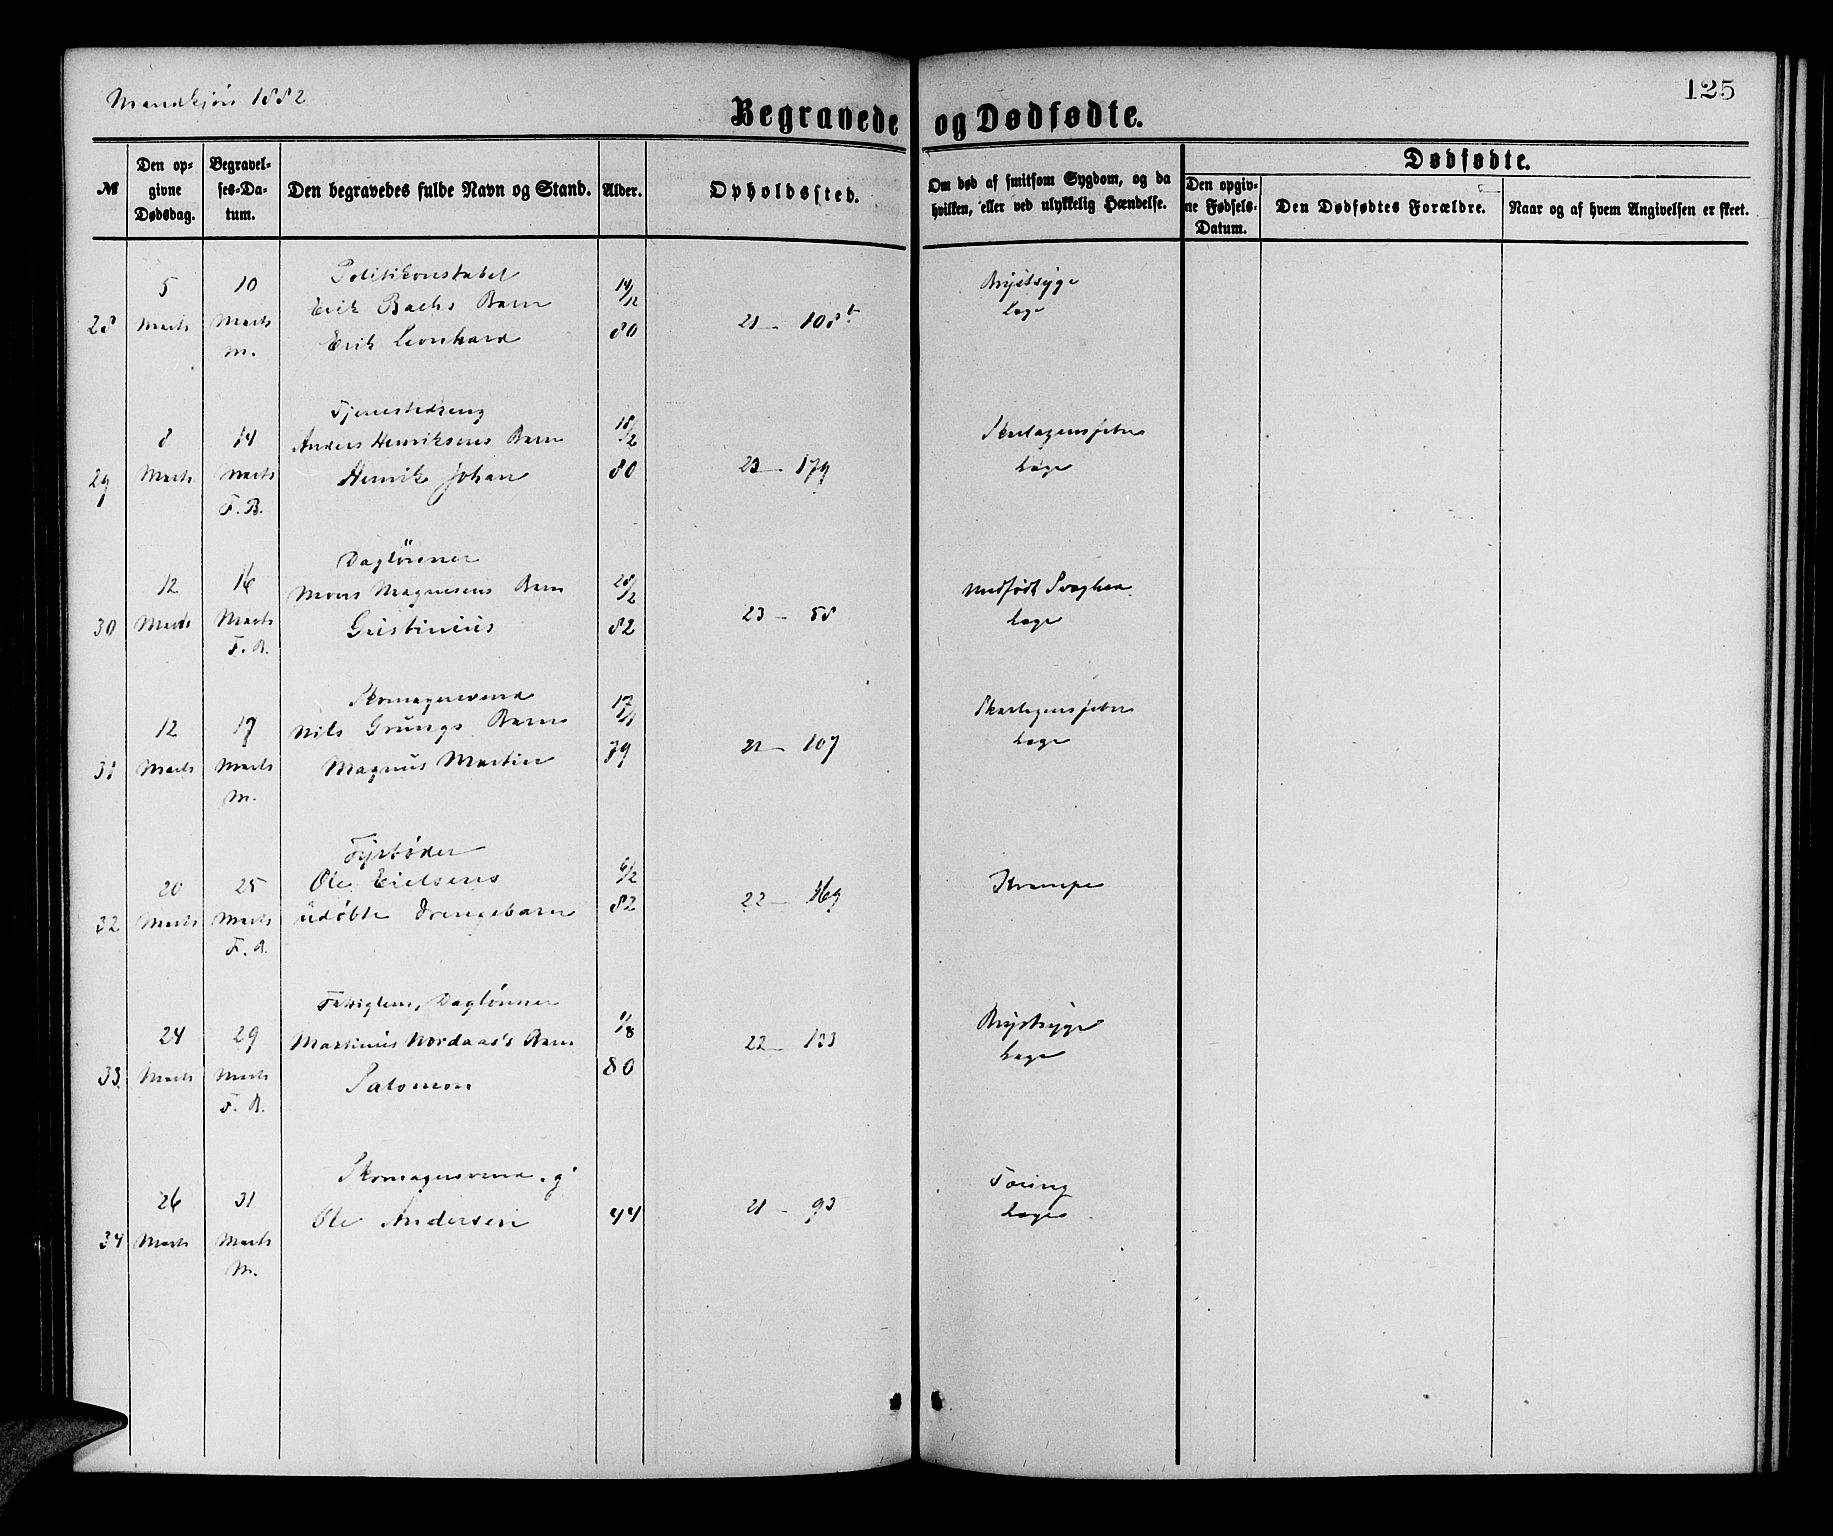 Mandkjön 1882
125
Begravede og Dødfødte.
№
Den op-
givne
Dødsdag.
Begravel-
ses-Da-
tum.
Den begravedes fulde Navn og Stand.
Alder.
Opholdssted.
Om død af smitsom Sygdom, og da
hvilken, eller ved ulykkelig Hændelse.
Dødfødte.
Den opgiv-
ne Fødsels-
Datum.
Den Dødfødtes Forældre.
Naar og af hvem Angivelsen er skeet.
28
5
Marts
10
Marts
M.
Politikonstabel
Erik Bachs Barn
Erik Leonhard
14/12
80
21 — 108b
Brystsyge
Læge
29
8
Marts
14
Marts
F. B.
Tjenestedreng
Anders Henriksens Barn
Henrik Johan
18/12
80
23 — 179
Skarlagensfeber
Læge
30
12
Marts
16
Marts
F. B.
Daglönner
Mons Magnesens Barn
Gustinius
28/2
82
23 — 58
Medfødt Svaghed
Læge
31
12
Marts
17
Marts
M.
Skomagersvend
Nils Grungs Barn
Magnus Martin
17/11
79
21 — 107
Skarlagensfeber
Læge
32
20
Marts
25
Marts
F. B.
Fyrbøder
Ole Eielsens
udøbte Drengebarn
6/2
82
22 — 169
Krampe
33
24
Marts
29
Marts
F. B.
Fattiglem, Daglönner
Martinus Nordaas's Barn
Salomon
1/8
80
22 — 133
Brystsyge
Læge
34
26
Marts
31
Marts
M.
Skomagersvend. g
Ole Andersen
44
21 — 93
Tæring
Læge